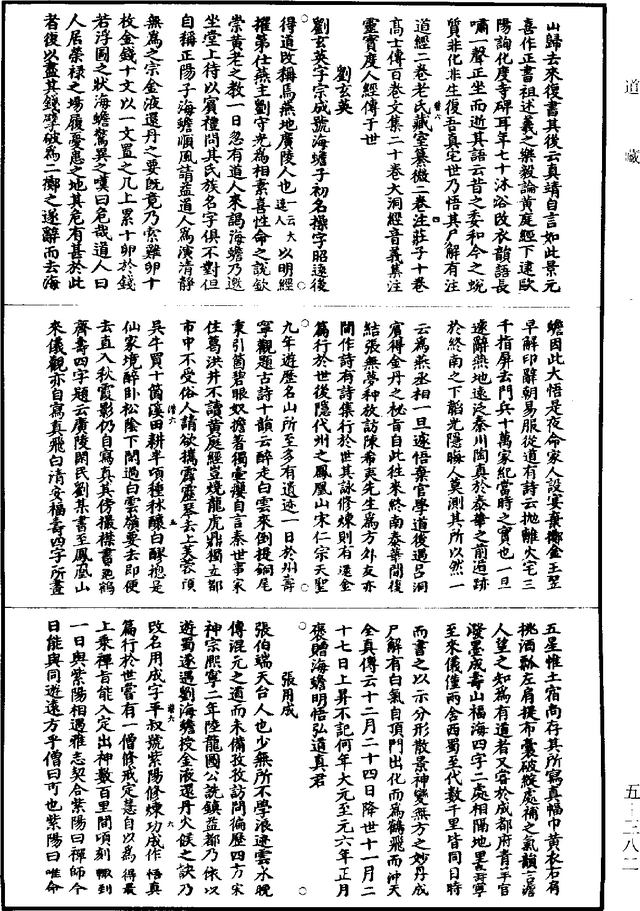 道藏
山歸去來復書其後云真靖自言如此景元
喜作正書祖述羲之樂毅論黃庭經下逮歐
陽詢化度寺碑耳年七十沐浴改衣韻語長
嘯一聲正坐而逝其語云昔之委和今之蛻
質非化非生復吾真宅世乃悟其尸解有注
道經二卷老氏藏室纂微二卷注莊子十卷
高士傳百卷文集二十卷大洞經音義集注
靈寶度人經傳于世
劉玄英
劉玄英字宗成號海蟾子初名操字昭遠後
得道改稱焉燕地廣陵人也一云大遼人以明經
擢第仕燕主劉守光為相素喜性命之說欽
崇黃老之教一日忽有道人來謁海蟾乃邀
坐堂上待以賓禮問其氏族名字俱不對但
自稱正陽子海蟾順風請益道人為演清靜
無為之宗金液還丹之要既竟乃索雞卵十
枚金錢十文以一文置之几上累十卵於錢
若浮圖之狀海蟾驚異之嘆曰危哉道人曰
人居榮祿之場履憂患之地其危有甚於此
者復以盡其錢擘破為二擲之遂辭而去海
蟾因此大悟是夜命家人設宴棄擲金玉翌
早解印辭朝易服從道有詩云拋離火宅三
千指屏去門兵十萬家紀當時之實也一旦
遂辭燕地遠泛秦川陶真於泰華之前遁跡
於終南之下韜光隱晦人莫測其所以然一
云為燕丞相一旦遽悟棄官學道後遇呂洞
賓得金丹之秘旨自此往來終南泰華間復
結張無夢种放訪陳希夷先生為方外友亦
間作詩有詩集行於世其詠修煉則有還金
篇行於世後隱代州之鳳凰山宋仁宗天聖
九年遊歷名山所至多有遺迹一日於州壽
寧觀題古詩十韻云醉走白雲來倒提銅尾
秉引箇碧眼奴擔著獨壺癭自言秦世事家
住葛洪井不讀黃庭經豈燒龍虎鼎獨立都
市中不受俗人請欲攜霹靂琴去上芙蓉頂
吳牛買十箇溪田耕半頃種秫釀白醪總是
仙家境醉臥松陰下閒過白雲嶺要去即便
去直入秋霞影仍自寫真其傍撮襟書龜鶴
齊壽四字題云廣陵閑民劉某書至鳳凰山
來儀觀亦自寫真飛白清安福壽四字所畫
五星惟土宿尚存其所寫真幅巾黃衣右肩
挑酒瓢左肩提布囊破猴處補之氣韻言滄
人望之知為有道者又嘗於成都府青羊宮
潑墨成壽山福海四字二處相隔地里壽寧
至來儀僅兩舍西蜀至代數千里皆同日時
而書之以示分形散景神變無方之妙丹成
尸解有白氣自頂門出化而為鶴飛而沖天
全真傳云十二月二十四日降世十一月二
十七日上昇不記何年大元至元六年正月
褒贈海蟾明悟弘道真君
張用成
張伯端天台人也少無所不學浪迹雲水晚
傳混元之道而未備孜孜訪問徧歷四方宋
神宗熙寧二年陸龍圖公詵鎮益都乃依以
遊蜀遂遇劉海蟾授金液還丹火候之訣乃
改名用成字平叔號紫陽修煉功成作悟真
篇行於世嘗有一僧修戒定慧自以為得最
上乘禪旨能入定出神數百里間頃刻輙到
一日與紫陽相遇雅志契合紫陽曰禪師今
日能與同遊遠方乎僧曰可也紫陽曰唯命
五-三八二